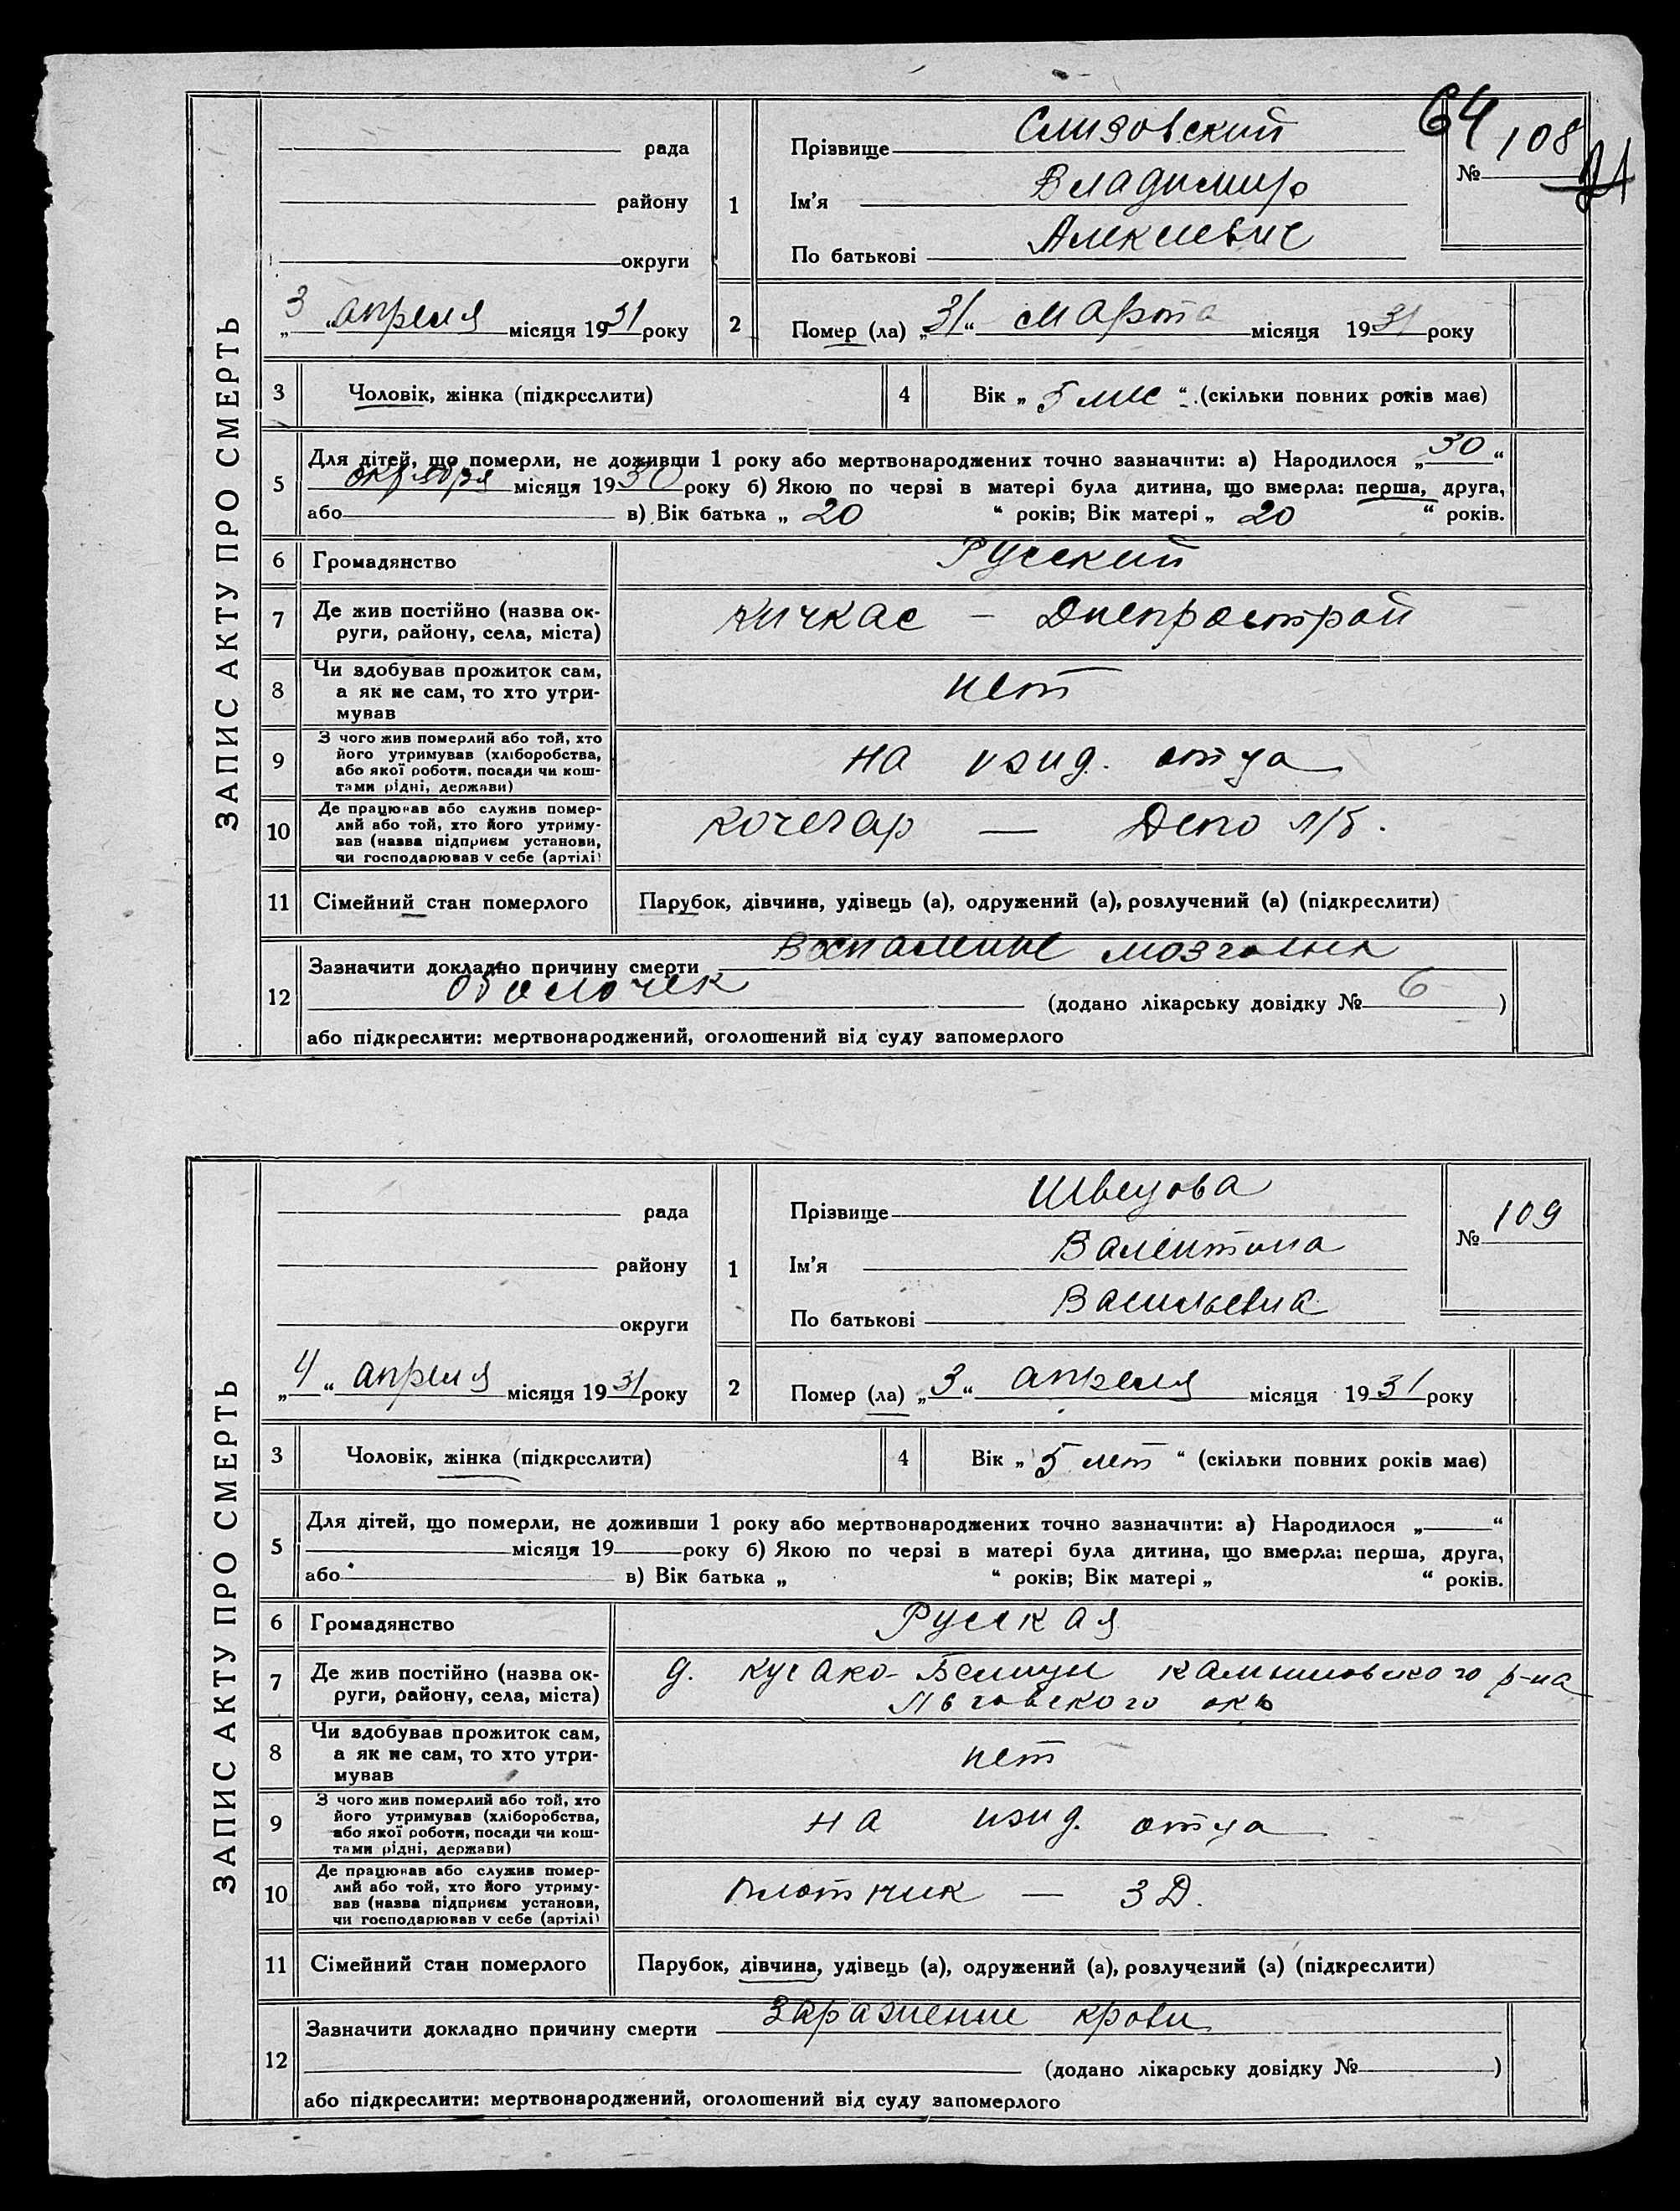 ЗАПИС АКТУ ПРО СМЕРТЬ
64
№ 108
рада
району
округи
„3“ апреля місяця 1931 року
1
Прізвище Слизовский
Ім'я Владимир
По батькові Алексеевич
2 Помер (ла) „31“ марта місяця 1931 року
3 Чоловік, жінка (підкреслити)
4 Вік „5 мес“ (скільки повних років має)
5 Для дітей, що померли, не доживши 1 року або мертвонароджених точно зазначити: а) Народилося „30“
октября місяця 1930 року б) Якою по черзі в матері була дитина, що вмерла: перша, друга,
або в) Вік батька „20“ років; Вік матері „20“ років.
6 Громадянство Русский
7 Де жив постійно (назва ок-
руги, району, села, міста) Кичкас – Днепрострой
8 Чи здобував прожиток сам,
а як не сам, то хто утри-
мував нет
9 З чого жив померлий або той, хто
його утримував (хліборобства,
або якої роботи, посади чи кош-
тами рідні, держави) на изид. отца
10 Де працював або служив помер-
лий або той, хто його утриму-
вав (назва підприєм установи,
чи господарював у себе (артілі) Кочегар — Депо л/б.
11 Сімейний стан померлого Парубок, дівчина, удівець (а), одружений (а), розлучений (а) (підкреслити)
12 Зазначити докладно причину смерти Воспаление мозговых
оболочек (додано лікарську довідку № 6)
або підкреслити: мертвонароджений, оголошений від суду запомерлого
ЗАПИС АКТУ ПРО СМЕРТЬ
№ 109
рада
району
округи
„4“ апреля місяця 1931 року
1
Прізвище Швецова
Ім'я Валентина
По батькові Васильевна
2 Помер (ла) „3“ апреля місяця 1931 року
3 Чоловік, жінка (підкреслити)
4 Вік „5 лет“ (скільки повних років має)
5 Для дітей, що померли, не доживши 1 року або мертвонароджених точно зазначити: а) Народилося „ “
місяця 19 року б) Якою по черзі в матері була дитина, що вмерла: перша, друга,
або в) Вік батька „ “ років; Вік матері „ “ років.
6 Громадянство Русская
7 Де жив постійно (назва ок-
руги, району, села, міста) д. р-на
Льговского окр
8 Чи здобував прожиток сам,
а як не сам, то хто утри-
мував нет
9 З чого жив померлий або той, хто
його утримував (хліборобства,
або якої роботи, посади чи кош-
тами рідні, держави) на изид. отца
10 Де працював або служив помер-
лий або той, хто його утриму-
вав (назва підприєм установи,
чи господарював у себе (артілі) плотник — 3 Д.
11 Сімейний стан померлого Парубок, дівчина, удівець (а), одружений (а), розлучений (а) (підкреслити)
12 Зазначити докладно причину смерти Заражение крови
(додано лікарську довідку № )
або підкреслити: мертвонароджений, оголошений від суду запомерлого